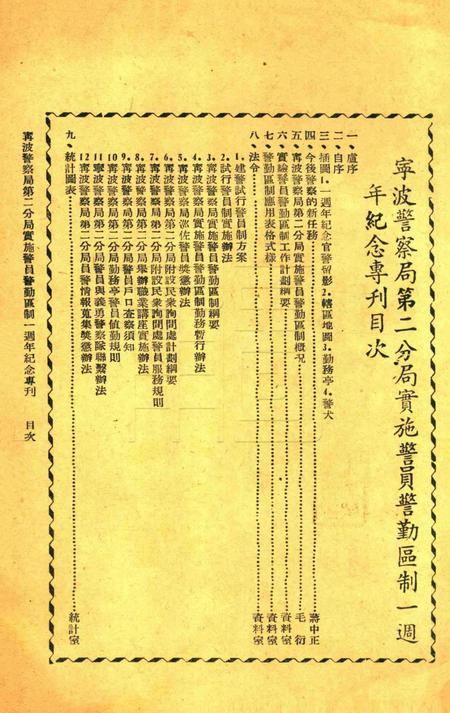 寧波警察局第二分局實施警員警勤區制一週
年紀念專刊目次
一、盧序
二、自序
三、插圖1.一週年紀念官警留影2.轄區地圖3.勤務亭4.警犬
四、今後警察的新任務……蔣中正
五、寧波警察局第二分局實施警員警勤區制概況……毛　衍
六、實驗警員警勤區制工作計劃綱要……資料室
七、警勤區制應用表格式樣……資料室
八、法令……資料室
1.建警試行警員制方案
2.試行警員制實施辦法
3.寧波警察局實施警員警勤區制綱要
4.寧波警察局實施警員警勤區制勤務暫行辦法
5.寧波警察局官佐警員獎懲辦法
6.寧波警察局第二分局附設民衆詢問處計劃綱要
7.寧波警察局第二分局附設民衆詢問處警員服務規則
8.寧波警察局第二分局舉辦職業講座實施辦法
9.寧波警察局第二分局警員戶口查察須知
10寧波警察局第二分局勤務亭警員值勤規則
11寧波警察局第二分局警員與義勇警察隊聯繫辦法
12寧波警察局第二分局員警情報蒐集獎懲辦法
九、統計圖表……統計室
寧波警察局第二分局實施警員警勤區制一週年紀念專刊　目次